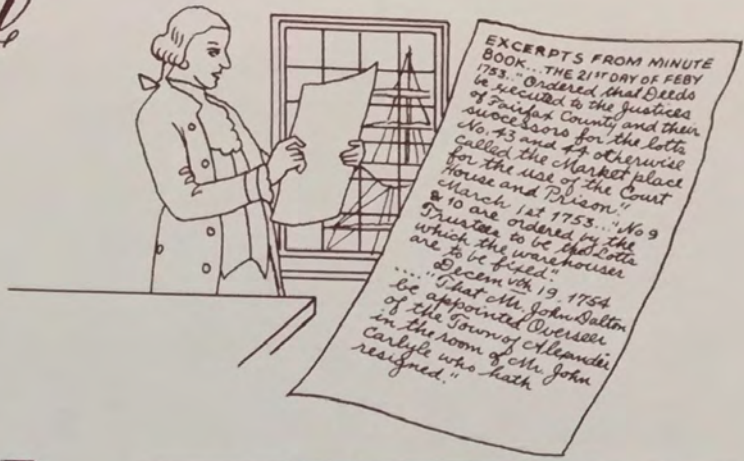 EXCERPTS FROM MINUTE
BOOK...THE 21ST DAY OF FEBY
1753.."Ordered that Deeds
be executed to the Justices
of Fairfax County and their
successors for the lotts
No. 43 and 44 otherwise
called the Market place
for the use of the Court
House and Prison."
March 1st 1753..."No 9
& 10 are ordered by the
Trustees to be the Lotts
which the warehouses
are to be fixed."
Decem vth 19. 1754
...."That Mr. John Dalton
be appointed Overseer
of the Town of Alexander
in the room of Mr. John
Carlyle who hath
resigned."